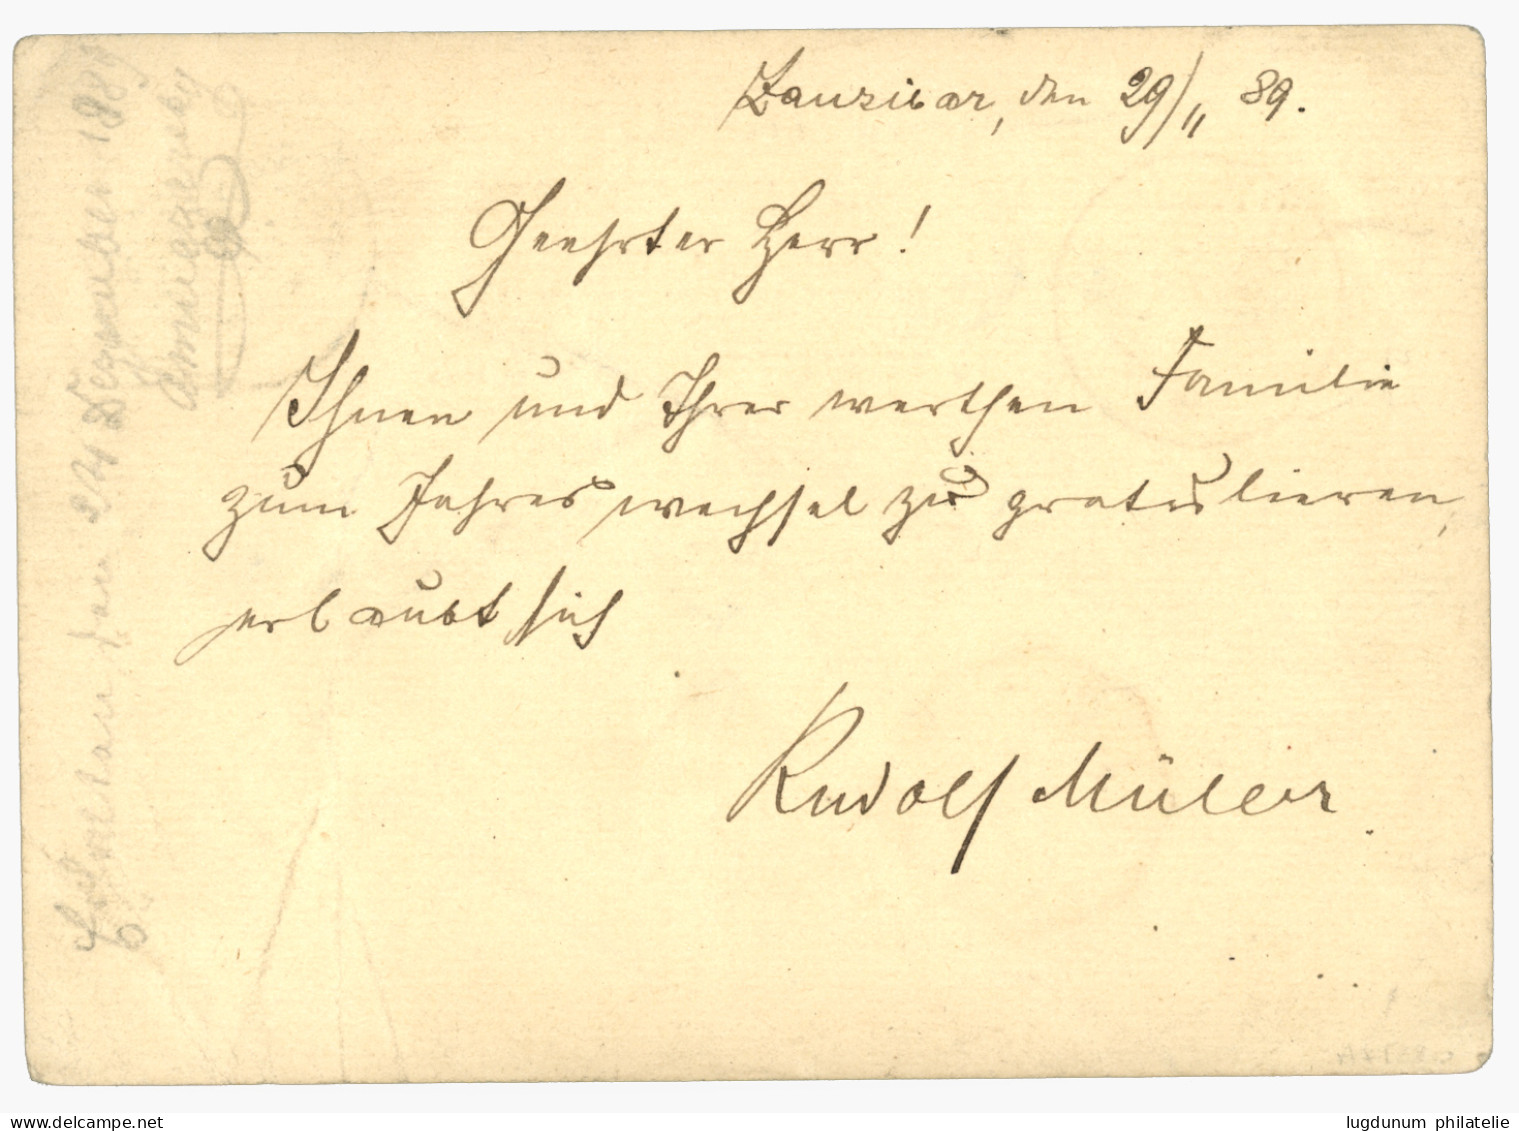 Zanzibar, den 29/11 89.
Geehrter Herr!
Ihnen und Ihrer werthen Familie
zum Jahreswechsel zu gratulieren,
erlaubt sich
Rudolf Müller.
24 Dezember 1889
delcampe.net
lugdunum philatelie